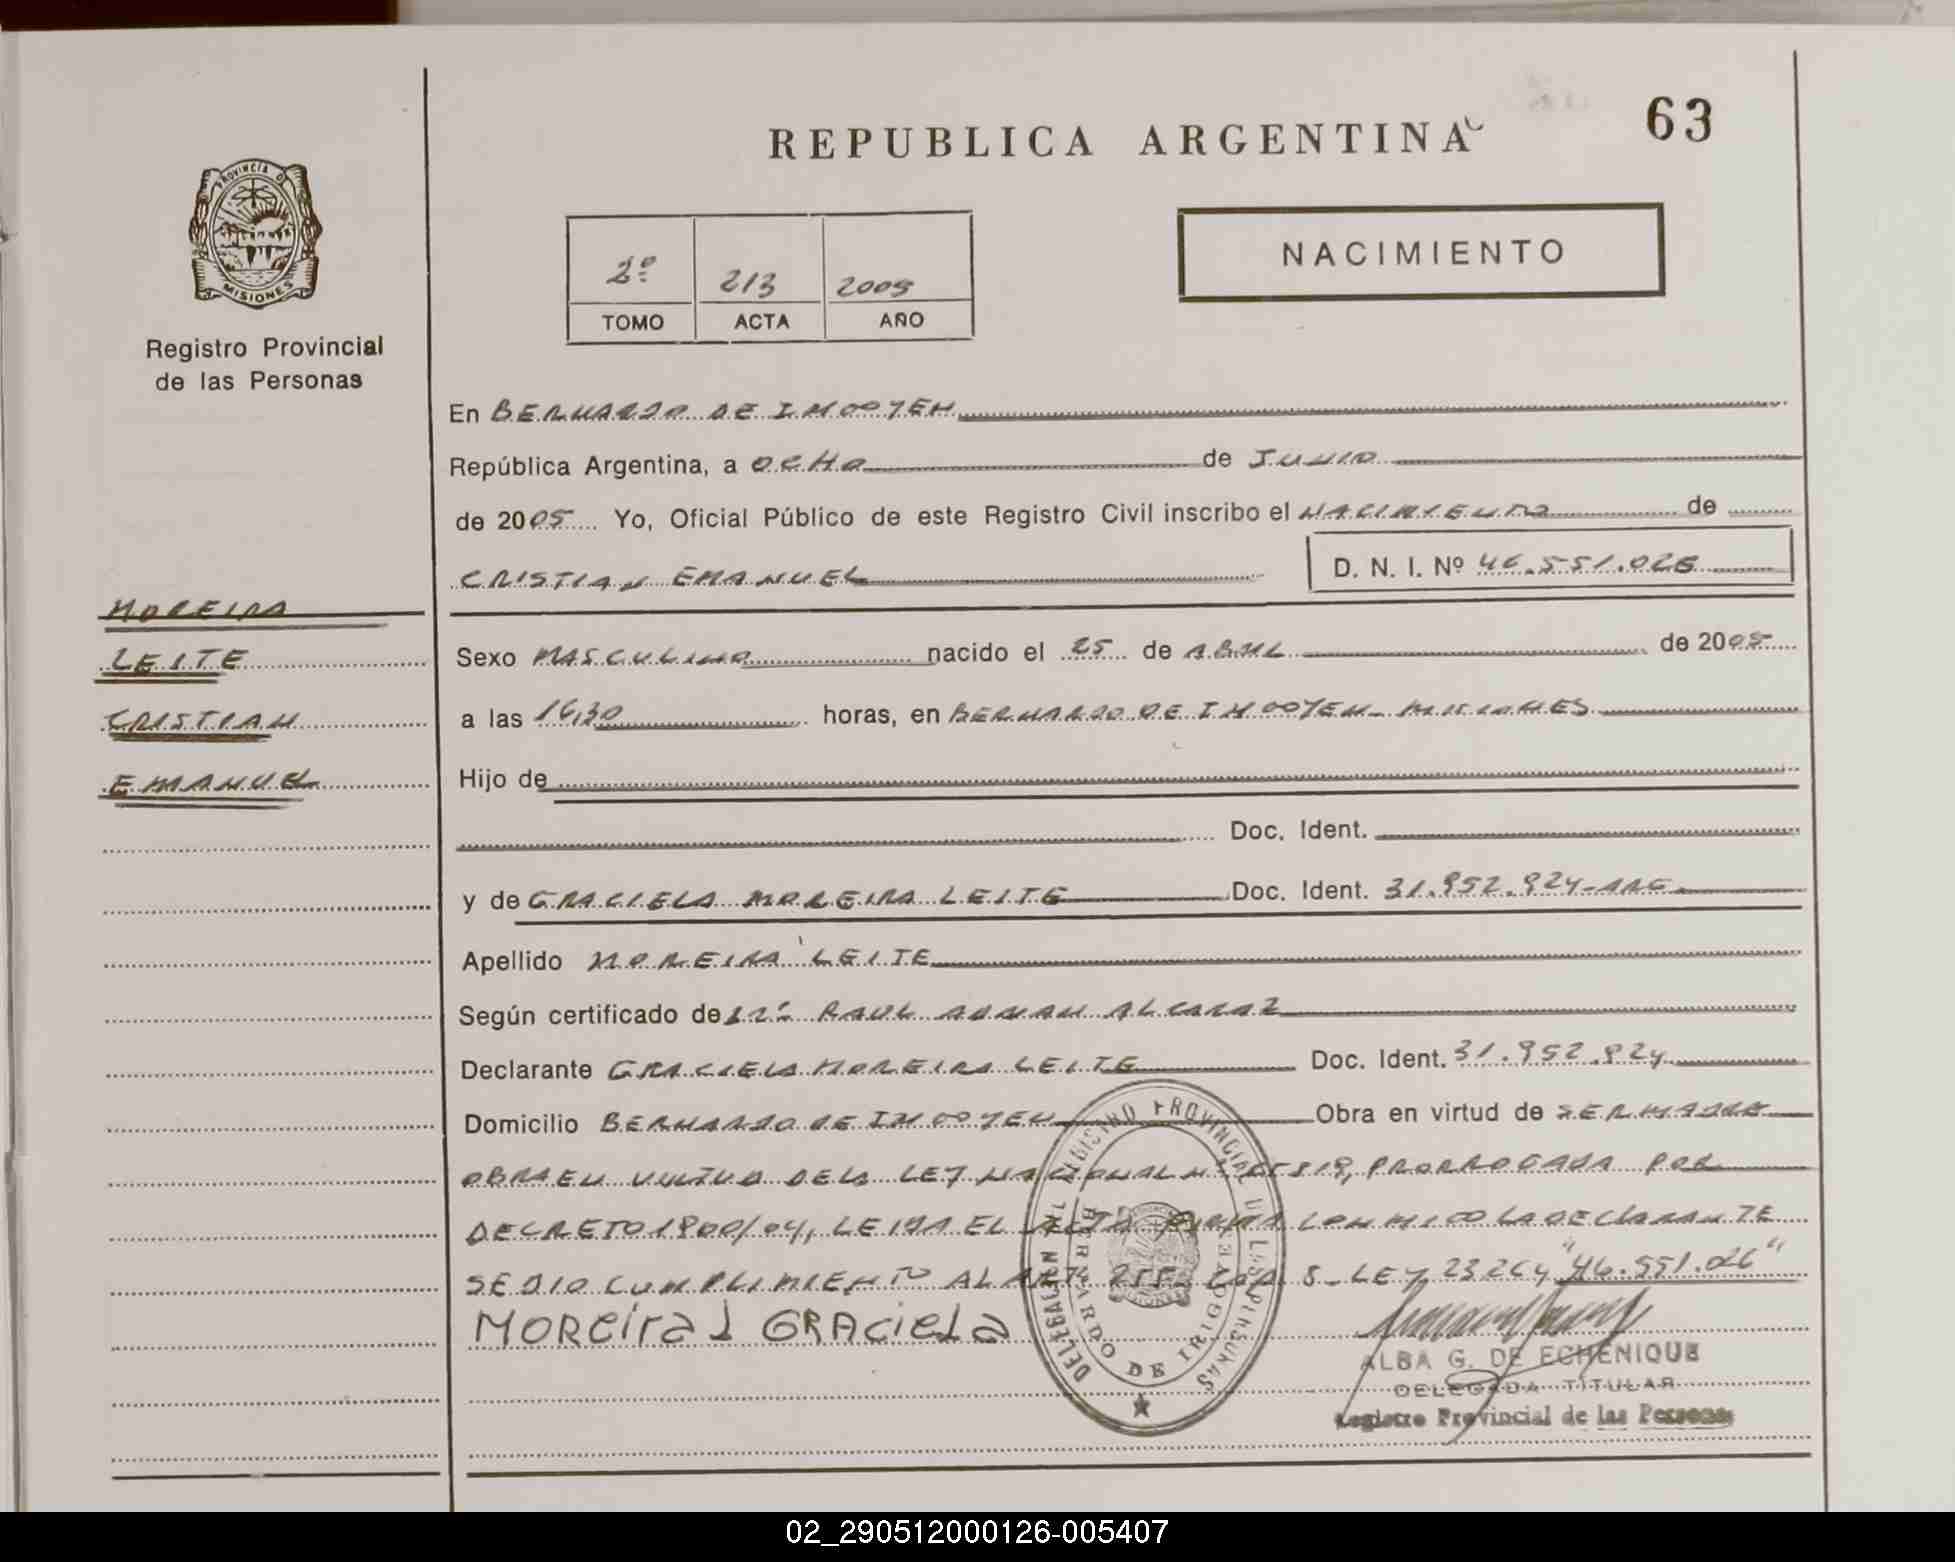 63
REPUBLICA ARGENTINA
PROVINCIA DE
MISIONES
Registro Provincial
de las Personas
2º 213 2005
TOMO ACTA AÑO
NACIMIENTO
En BERNARDO DE IRIGOYEN
República Argentina, a OCHO de JUNIO
de 2005 Yo, Oficial Público de este Registro Civil inscribo el NACIMIENTO de
CRISTIAN EMANUEL D. N. I. Nº 46.551.026
MOREIRA
LEITE
CRISTIAN
EMANUEL
Sexo MASCULINO nacido el 25 de ABRIL de 2005
a las 16,30 horas, en BERNARDO DE IRIGOYEN- MISIONES
Hijo de
Doc. Ident.
y de GRACIELA MOREIRA LEITE Doc. Ident. 31.952.924-ARG
Apellido MOREIRA LEITE
Según certificado de RAUL ADRIAN ALCARAZ
Declarante GRACIELA MOREIRA LEITE Doc. Ident. 31.952.924
Domicilio BERNARDO DE IRIGOYEN Obra en virtud de SER MADRE
OBRA EN VIRTUD DE LA LEY NACIONAL Nº 25819, PRORROGADA POR
DECRETO 1800/04, LEIDA EL ACTA FIRMA CONMIGO LA DECLARANTE
SE DIO CUMPLIMIENTO AL ART. 255- COD. S- LEY 23264 "46.551.026"
MOREIRA L GRACIELA
REGISTRO PROVINCIAL DE LAS PERSONAS
BERNARDO DE IRIGOYEN
ALBA G. DE ECHENIQUE
DELEGADA TITULAR
Registro Provincial de las Personas
02_290512000126-005407